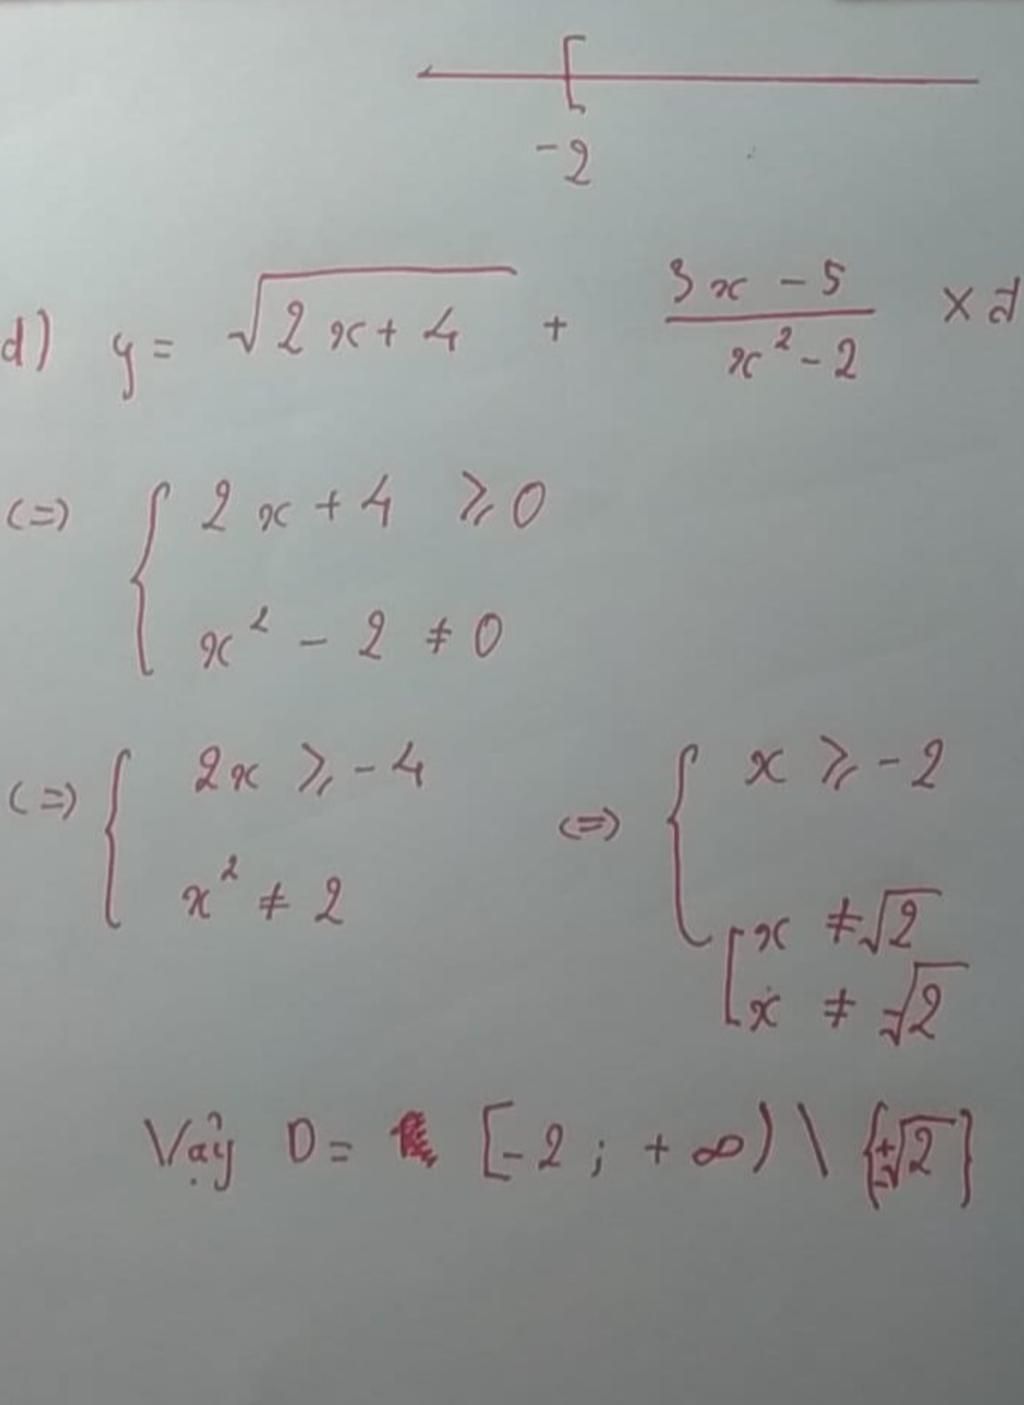 -2
d) y = √(2x+4) + (3x - 5)/(x² - 2) xđ
(=) { 2x + 4 ⩾ 0
x² - 2 ≠ 0
(=) { 2x ⩾ -4 (=) { x ⩾ -2
x² ≠ 2 [ x ≠ √2
x ≠ -√2
Vậy D = [-2 ; +∞) \ {±√2}